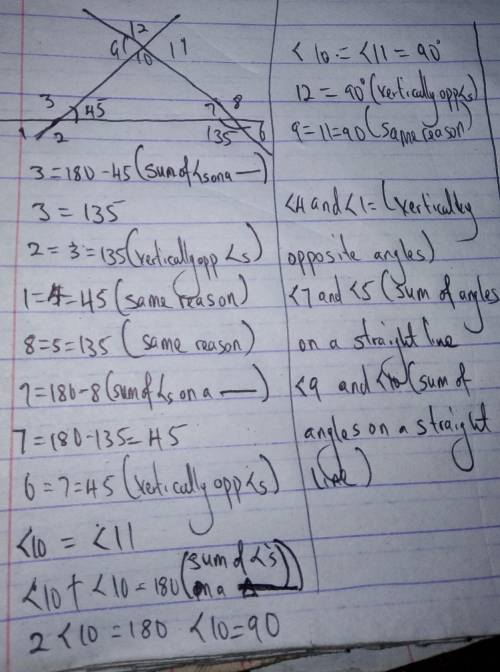 12
9 10 11
3 45 7 8
1 2 135 6
3=180-45(sum of <s on a —)
3=135
2=3=135(vertically opp <s)
1=4=45(same reason)
8=5=135(same reason)
7=180-8(sum of <s on a —)
7=180-135=45
6=7=45(vertically opp <s)
<10=<11
<10+<10=180(sum of <'s on a —)
2<10=180 <10=90
<10=<11=90°
12=90°(vertically opp <s)
9=11=90(same reason)
<4 and <1=(vertically
opposite angles)
<7 and <5(sum of angles
on a straight line
<9 and <10(sum of
angles on a straight
line)